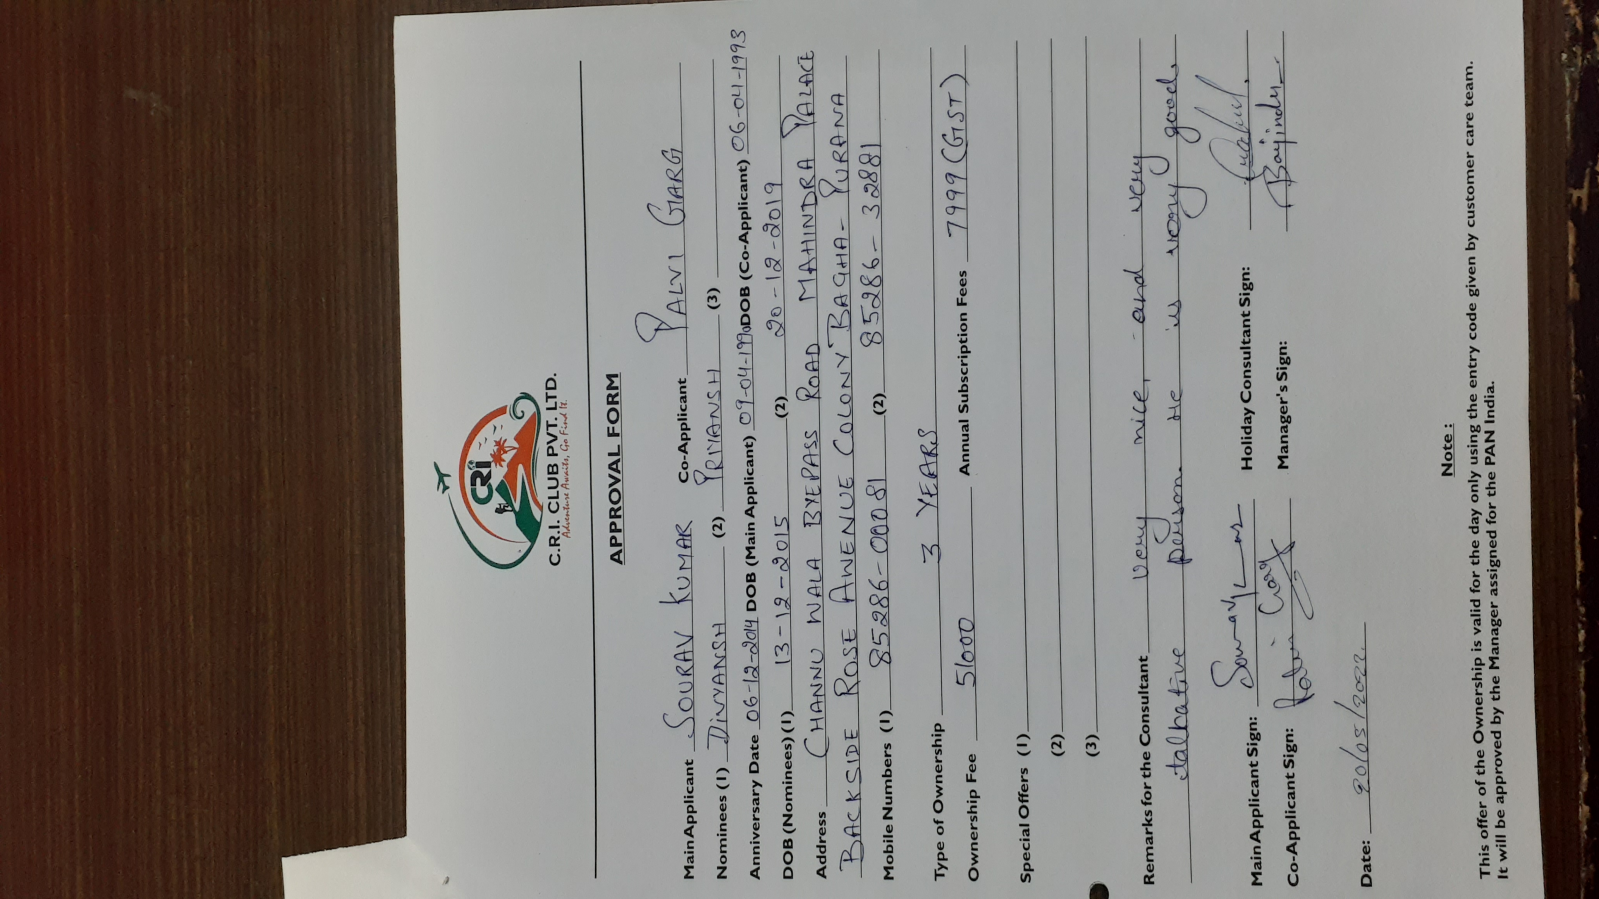 CRI
C.R.I. CLUB PVT. LTD.
Adventure Awaits, Go Find It.
APPROVAL FORM
Main Applicant SOURAV KUMAR Co-Applicant PALVI GARG
Nominees (1) DIVYANSH (2) PRIYANSH (3)
Anniversary Date 06-12-2014 DOB (Main Applicant) 09-04-1990 DOB (Co-Applicant) 06-04-1993
DOB (Nominees) (1) 13-12-2015 (2) 20-12-2019
Address CHANNU WALA BYEPASS ROAD MAHINDRA PALACE
BACKSIDE ROSE AWENUE COLONY BAGHA-PURANA
Mobile Numbers (1) 85286-00081 (2) 85286-32881
Type of Ownership 3 YEARS
Ownership Fee 51000 Annual Subscription Fees 7999 (GST)
Special Offers (1)
(2)
(3)
Remarks for the Consultant very nice, and very
talkative person. He is very good.
Main Applicant Sign: Holiday Consultant Sign:
Co-Applicant Sign: Palvi Garg Manager's Sign:
Date: 20/05/2022.
Note :
This offer of the Ownership is valid for the day only using the entry code given by customer care team.
It will be approved by the Manager assigned for the PAN India.